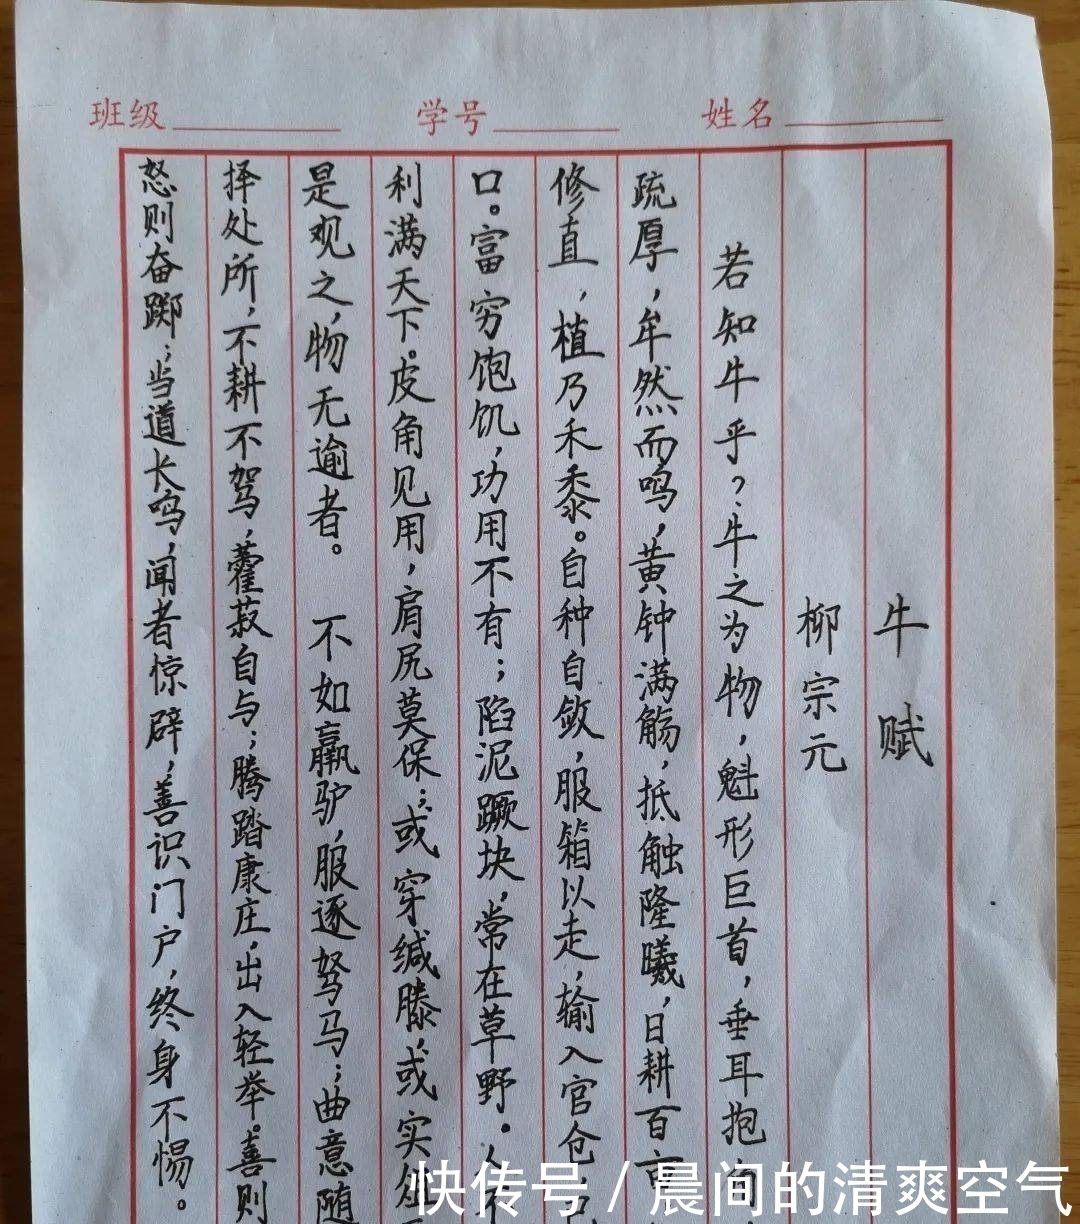 班级 学号 姓名
牛赋
柳宗元
若知牛乎？牛之为物，魁形巨首，垂耳抱
疏厚，牟然而鸣，黄钟满觞，抵触隆曦，日耕百亩
修直，植乃禾黍。自种自敛，服箱以走，输入官仓，己
口。富穷饱饥，功用不有；陷泥蹶块，常在草野。人不
利满天下。皮角见用，肩尻莫保；或穿缄滕，或实俎
是观之，物无逾者。 不如羸驴，服逐驽马；曲意随
择处所，不耕不驾，藿菽自与；腾踏康庄，出入轻举。喜则
怒则奋踯；当道长鸣，闻者惊辟，善识门户，终身不惕。
快传号 / 晨间的清爽空气